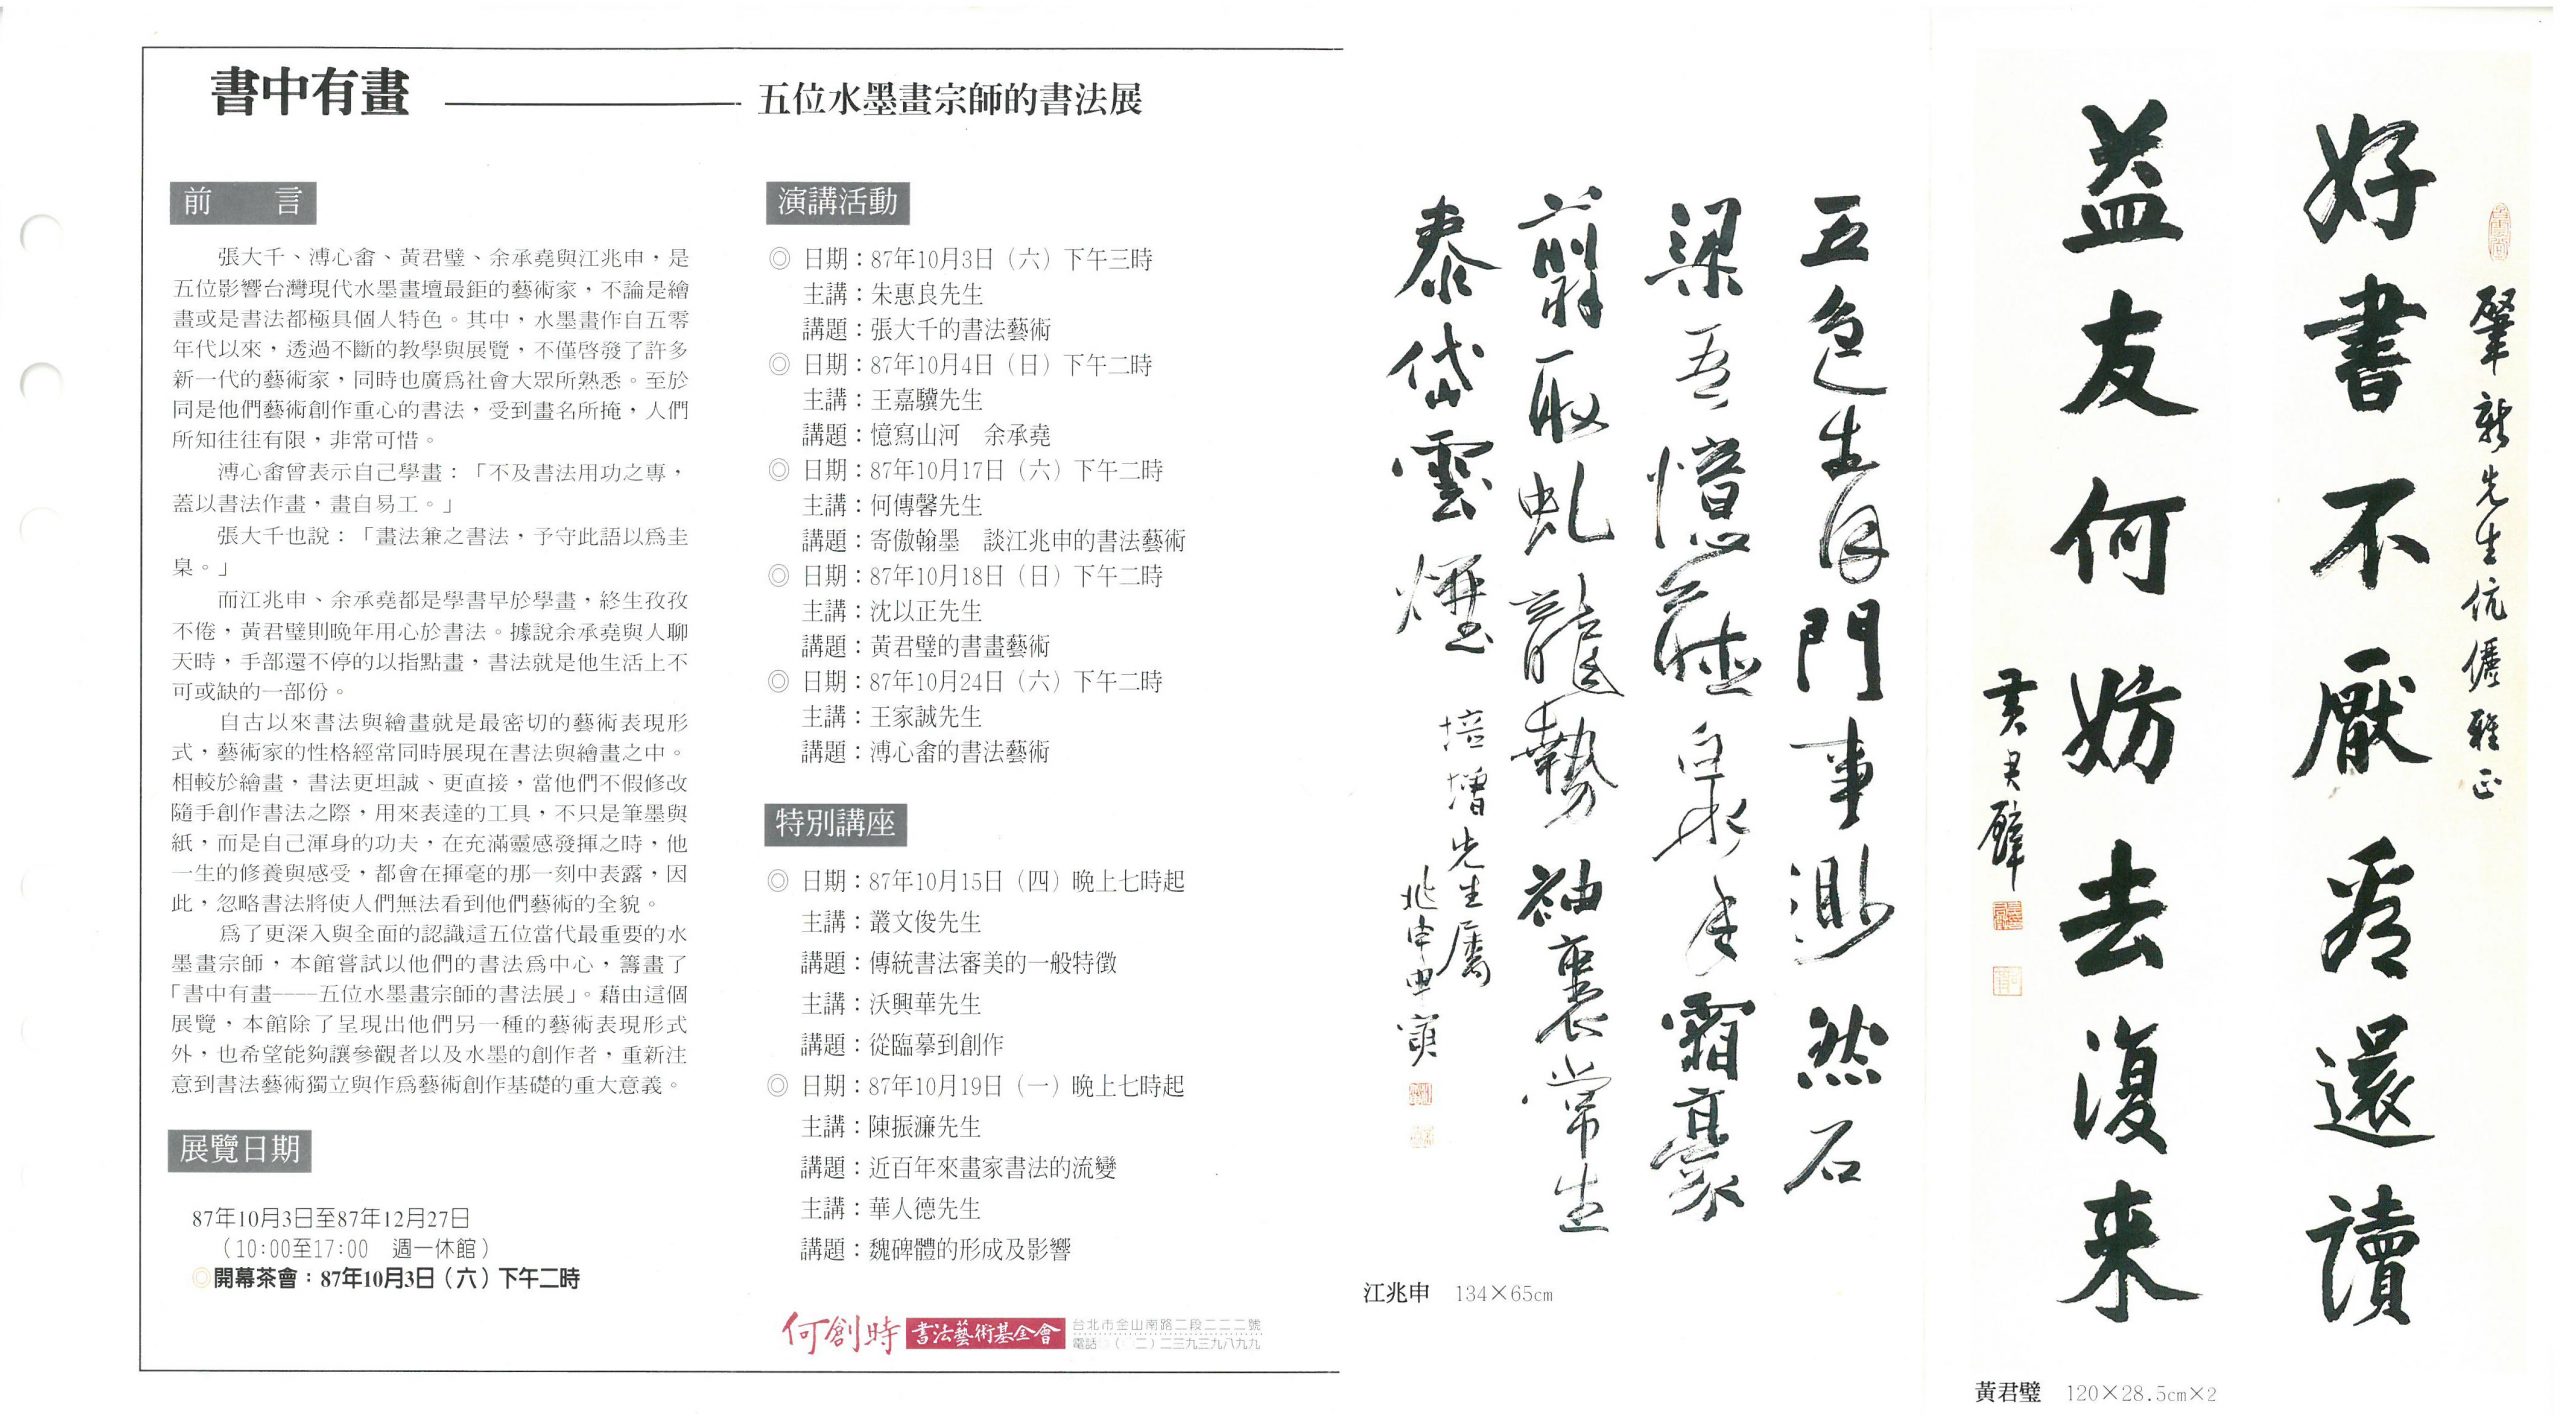 書中有畫 —— 五位水墨畫宗師的書法展
前言
張大千、溥心畬、黃君璧、余承堯與江兆申，是
五位影響台灣現代水墨畫壇最鉅的藝術家，不論是繪
畫或是書法都極具個人特色。其中，水墨畫作自五零
年代以來，透過不斷的教學與展覽，不僅啓發了許多
新一代的藝術家，同時也廣爲社會大眾所熟悉。至於
同是他們藝術創作重心的書法，受到畫名所掩，人們
所知往往有限，非常可惜。
溥心畬曾表示自己學畫：「不及書法用功之專，
蓋以書法作畫，畫自易工。」
張大千也說：「畫法兼之書法，予守此語以爲圭
臬。」
而江兆申、余承堯都是學書早於學畫，終生孜孜
不倦，黃君璧則晚年用心於書法。據說余承堯與人聊
天時，手部還不停的以指點畫，書法就是他生活上不
可或缺的一部份。
自古以來書法與繪畫就是最密切的藝術表現形
式，藝術家的性格經常同時展現在書法與繪畫之中。
相較於繪畫，書法更坦誠、更直接，當他們不假修改
隨手創作書法之際，用來表達的工具，不只是筆墨與
紙，而是自己渾身的功夫，在充滿靈感發揮之時，他
一生的修養與感受，都會在揮毫的那一刻中表露，因
此，忽略書法將使人們無法看到他們藝術的全貌。
爲了更深入與全面的認識這五位當代最重要的水
墨畫宗師，本館嘗試以他們的書法爲中心，籌畫了
「書中有畫----五位水墨畫宗師的書法展」。藉由這個
展覽，本館除了呈現出他們另一種的藝術表現形式
外，也希望能夠讓參觀者以及水墨的創作者，重新注
意到書法藝術獨立與作爲藝術創作基礎的重大意義。
展覽日期
87年10月3日至87年12月27日
（10:00至17:00　週一休館）
◎開幕茶會：87年10月3日（六）下午二時
演講活動
◎ 日期：87年10月3日（六）下午三時
主講：朱惠良先生
講題：張大千的書法藝術
◎ 日期：87年10月4日（日）下午二時
主講：王嘉驥先生
講題：憶寫山河　余承堯
◎ 日期：87年10月17日（六）下午二時
主講：何傳馨先生
講題：寄傲翰墨　談江兆申的書法藝術
◎ 日期：87年10月18日（日）下午二時
主講：沈以正先生
講題：黃君璧的書畫藝術
◎ 日期：87年10月24日（六）下午二時
主講：王家誠先生
講題：溥心畬的書法藝術
特別講座
◎ 日期：87年10月15日（四）晚上七時起
主講：叢文俊先生
講題：傳統書法審美的一般特徵
主講：沃興華先生
講題：從臨摹到創作
◎ 日期：87年10月19日（一）晚上七時起
主講：陳振濂先生
講題：近百年來畫家書法的流變
主講：華人德先生
講題：魏碑體的形成及影響
何創時 書法藝術基金會
台北市金山南路二段二二二號
電話（〇二）二三九三九八九九
五色生自門事測然石
梁吾憶 白泉手霜毫
翦取虬龍勢袖裏常生
泰岱雲煙
培增先生屬
兆申甲寅
江兆申　134×65cm
肇新先生伉儷雅正
好書不厭看還讀
益友何妨去復来
黃君璧
黃君璧　120×28.5cm×2